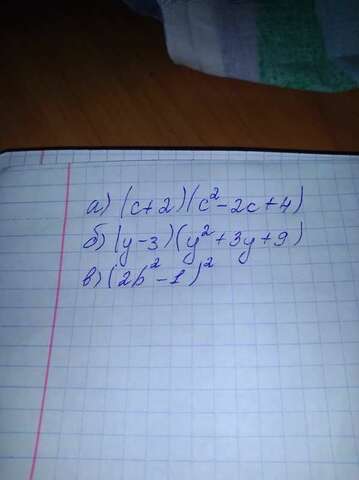 а) (c+2)(c²-2c+4)
б) (y-3)(y²+3y+9)
в) (2b²-1)²